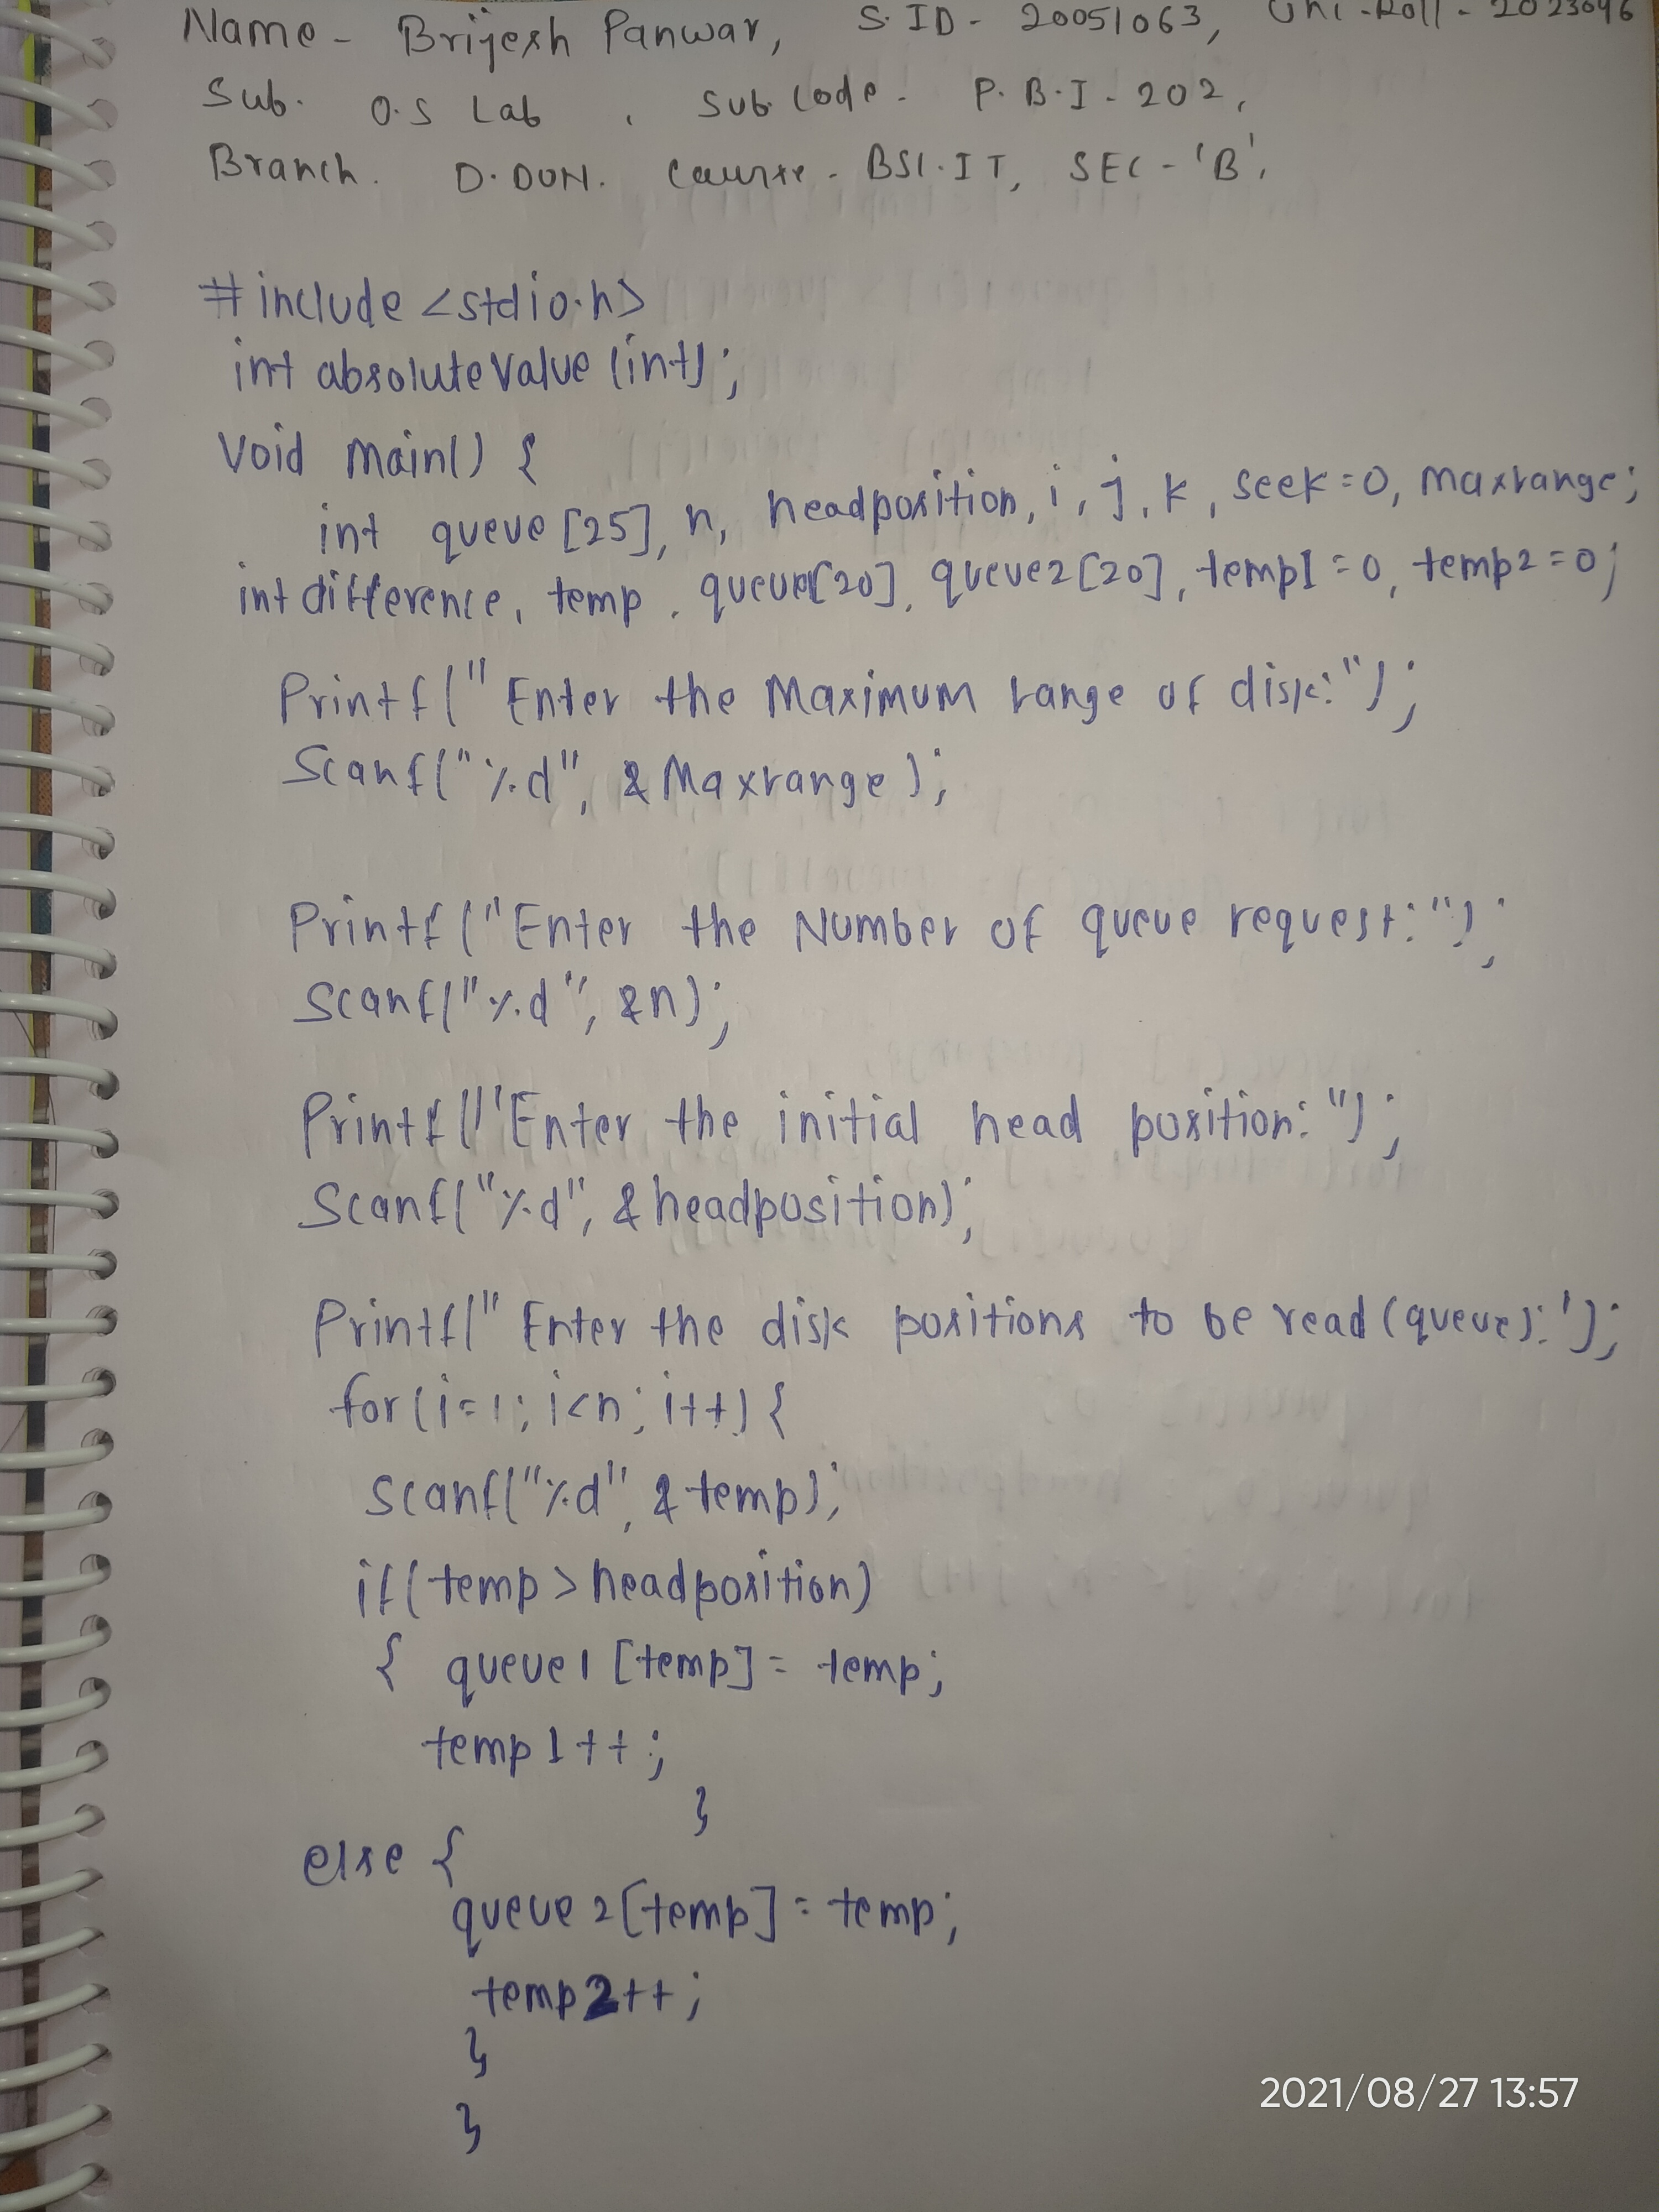 Name - Brijesh Panwar, S.ID - 20051063, Uni-Roll - 2023046
Sub. O.S Lab , Sub Code - P.B.I-202,
Branch. D.DUN. Course - BSC.IT, SEC-'B',
#include <stdio.h>
int absoluteValue (int);
Void main() {
int queue [25], n, headposition, i, j, k, seek=0, maxrange;
int difference, temp, queue1[20], queue2[20], temp1=0, temp2=0;
Printf(" Enter the Maximum range of disk:");
Scanf("%d", &Maxrange);
Printf("Enter the Number of queue request:");
Scanf("%d", &n);
Printf("Enter the initial head position:");
Scanf("%d", &headposition);
Printf(" Enter the disk positions to be read (queue):');
for(i=1; i<n; i++) {
Scanf("%d", &temp);
if(temp>headposition)
{ queue1 [temp] = temp;
temp1++;
}
else {
queue2[temp] = temp;
temp2++;
}
}
2021/08/27 13:57